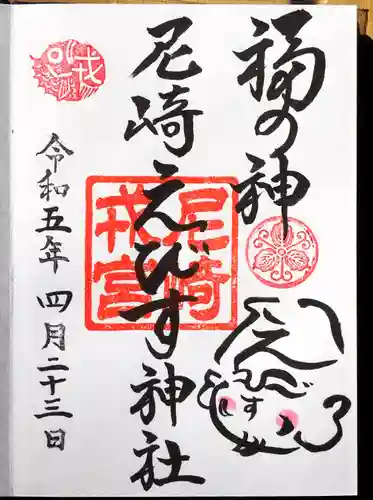 福の神
尼崎えびす神社
尼崎
戎宮
えびす
戎
令和五年 四月二十三日